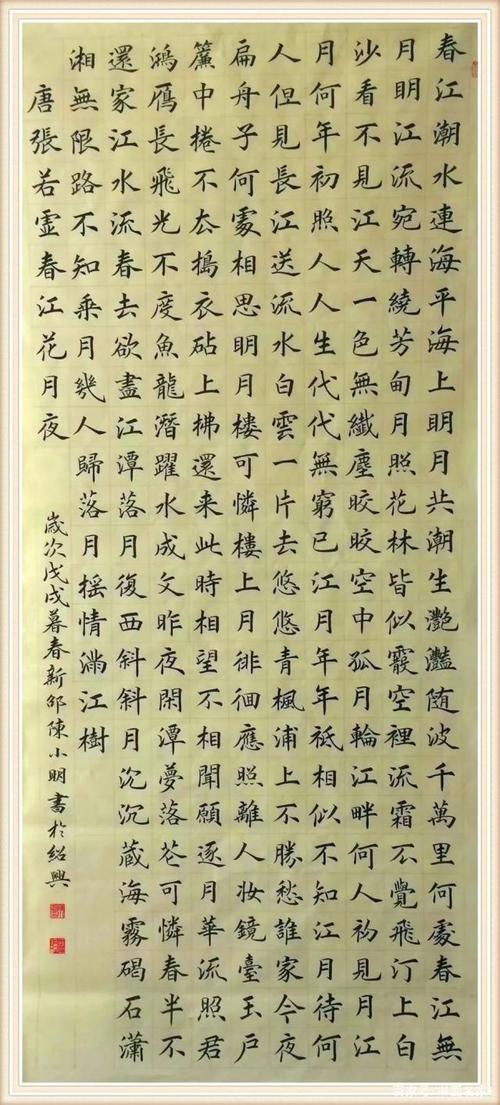 春江潮水連海平海上明月共潮生灧灩随波千萬里何處春江無
月明江流宛轉繞芳甸月照花林皆似霰空裡流霜不覺飛汀上白
沙看不見江天一色無纖塵皎皎空中孤月輪江畔何人初見月江
月何年初照人人生代代無窮已江月年年祗相似不知江月待何
人但見長江送流水白雲一片去悠悠青楓浦上不勝愁誰家今夜
扁舟子何處相思明月樓可憐樓上月徘徊應照離人妝鏡臺玉戶
簾中捲不去搗衣砧上拂還来此時相望不相聞願逐月華流照君
鴻鴈長飛光不度魚龍潛躍水成文昨夜閑潭夢落花可憐春半不
還家江水流春去欲盡江潭落月復西斜斜月沉沉蔵海霧碣石瀟
湘無限路不知乘月幾人歸落月摇情滿江樹
唐張若虛春江花月夜
歲次戊戌暮春新邵陳小明書於紹興